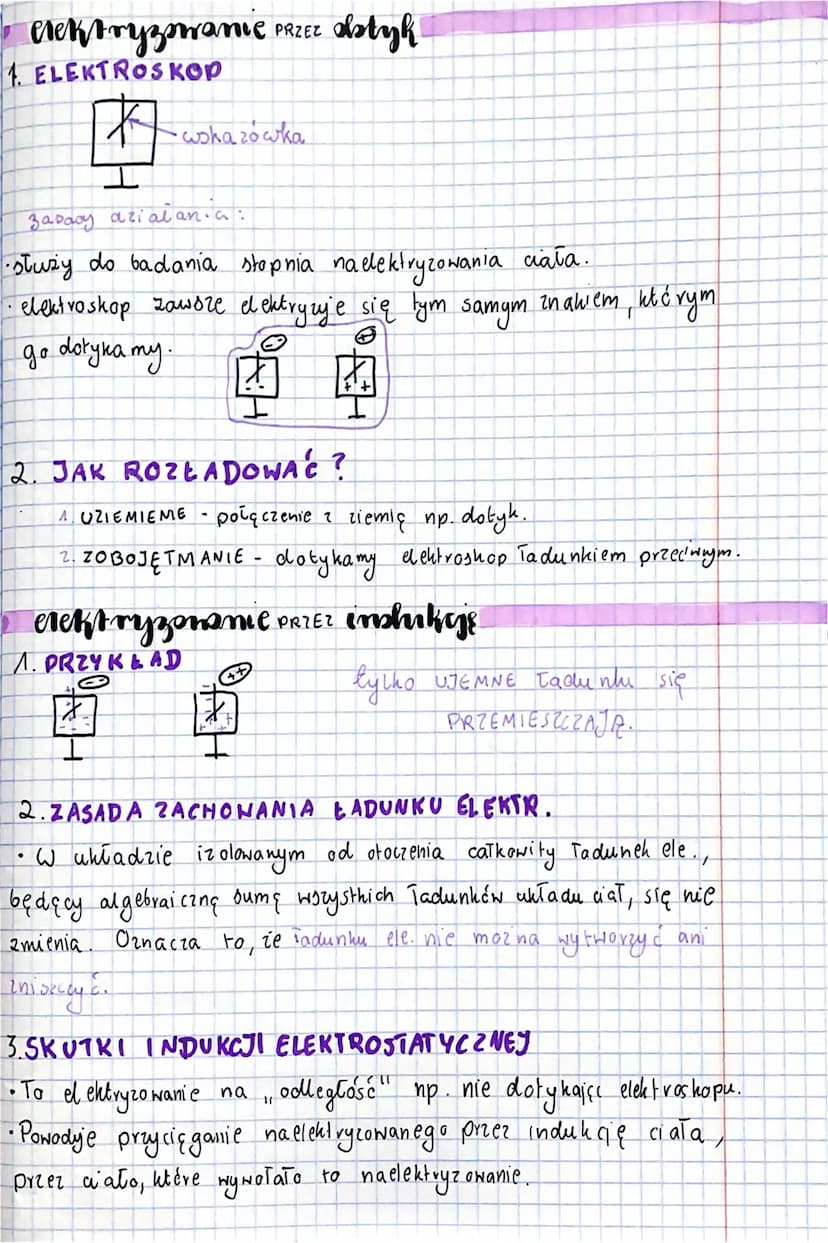 elektryzowanie PRZEZ dotyk
1. ELEKTROSKOP
wskazówka
zasady działania:
·służy do badania stopnia naelektryzowania ciała.
· elektroskop zawsze elektryzuje się tym samym znakiem, którym
go dotykamy.
2. JAK ROZŁADOWAĆ?
1. UZIEMIEME - połączenie z ziemię np. dotyk.
2. ZOBOJĘTMANIE - dotykamy elektroskop ładunkiem przeciwnym.
elektryzowanie PRZEZ indukcję
1. PRZYKŁAD
tylko UJEMNE ładunku się
PRZEMIESZCZAJĄ.
2. ZASADA ZACHOWANIA ŁADUNKU ELEKTR.
· W układzie izolowanym od otoczenia całkowity ładunek ele.,
będęcy algebraicznę sumę wszystkich ładunków układu ciał, się nie
zmienia. Oznacza to, że ładunku ele. nie można wytworzyć ani
zniszczyć.
3. SKUTKI INDUKCJI ELEKTROSTATYCZNEJ
· To elektryzowanie na „odległość" np. nie dotykajęc elektroskopu.
· Powoduje przycięganie naelektryzowanego przez indukcję ciała,
przez ciało, które wywołało to naelektryzowanie.